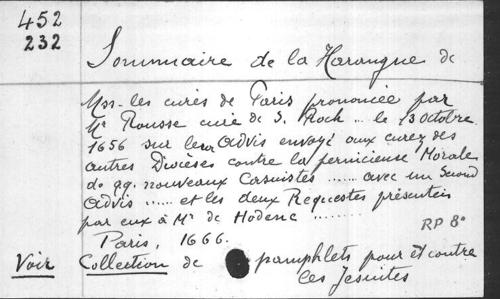 452
232
Sommaire de la Harangue de
Mss- les curés de Paris prononcée par
Mr Rousse curé de S. Roch ... le 13 octobre
1656 sur leur advis envoyé aux curez des
autres Diocèses contre la pernicieuse Morale
de qq. nouveaux Casuistes ....... avec un Second
advis ...... et les deux Requestes présentées
par eux à Mr de Hodenc ..........
Paris, 1666.
RP 8°
Voir Collection de pamphlets pour et contre
les Jésuites